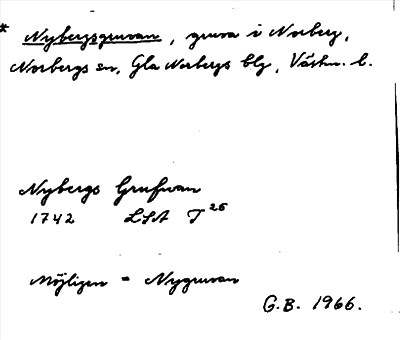 * Nybergsgruvan, gruva i Norberg,
Norbergs sn, Gla Norbergs blg, Västm. l.
Nybergs Grufwan
1742 LSA T 26
Möjligen = Nygruvan
G.B. 1966.